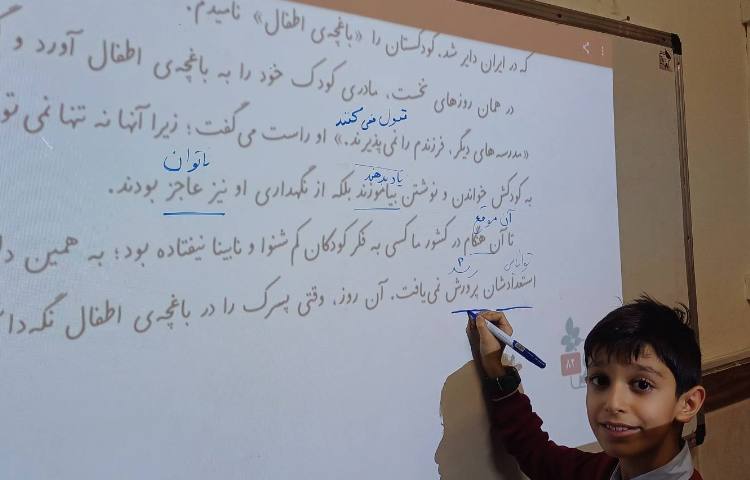 که در ایران دایر شد. کودکستان را «باغچه‌ی اطفال» نامیدم.
در همان روزهای نخست، مادری کودک خود را به باغچه‌ی اطفال آورد و
قبول می کنند
«مدرسه‌های دیگر، فرزندم را نمی‌پذیرند.» او راست می‌گفت؛ زیرا آنها نه تنها نمی‌تو
یاد بدهند ناتوان
به کودکش خواندن و نوشتن بیاموزند بلکه از نگهداری او نیز عاجز بودند.
آن موقع
تا آن هنگام در کشور ما کسی به فکر کودکان کم شنوا و نابینا نیفتاده بود؛ به همین
رشد
استعدادشان پرورش نمی‌یافت. آن روز، وقتی پسرک را در باغچه‌ی اطفال نگه
۸۲